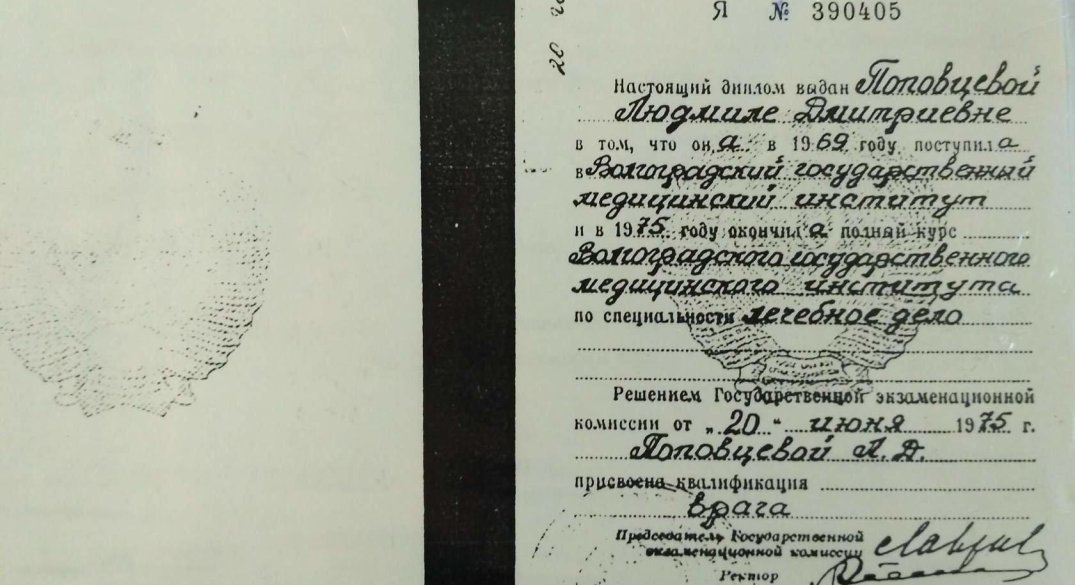 Я № 390405
Настоящий диплом выдан Поповцевой
Людмиле Дмитриевне
в том, что она в 1969 году поступила
в Волгоградский государственный
медицинский институт
и в 1975 году окончила полный курс
Волгоградского государственного
медицинского института
по специальности лечебное дело
Решением Государственной экзаменационной
комиссии от „20“ июня 1975 г.
Поповцевой Л. Д.
присвоена квалификация
врача
Председатель Государственной
экзаменационной комиссии
Ректор